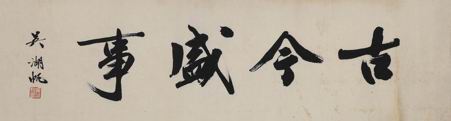 古今盛事
吳湖帆